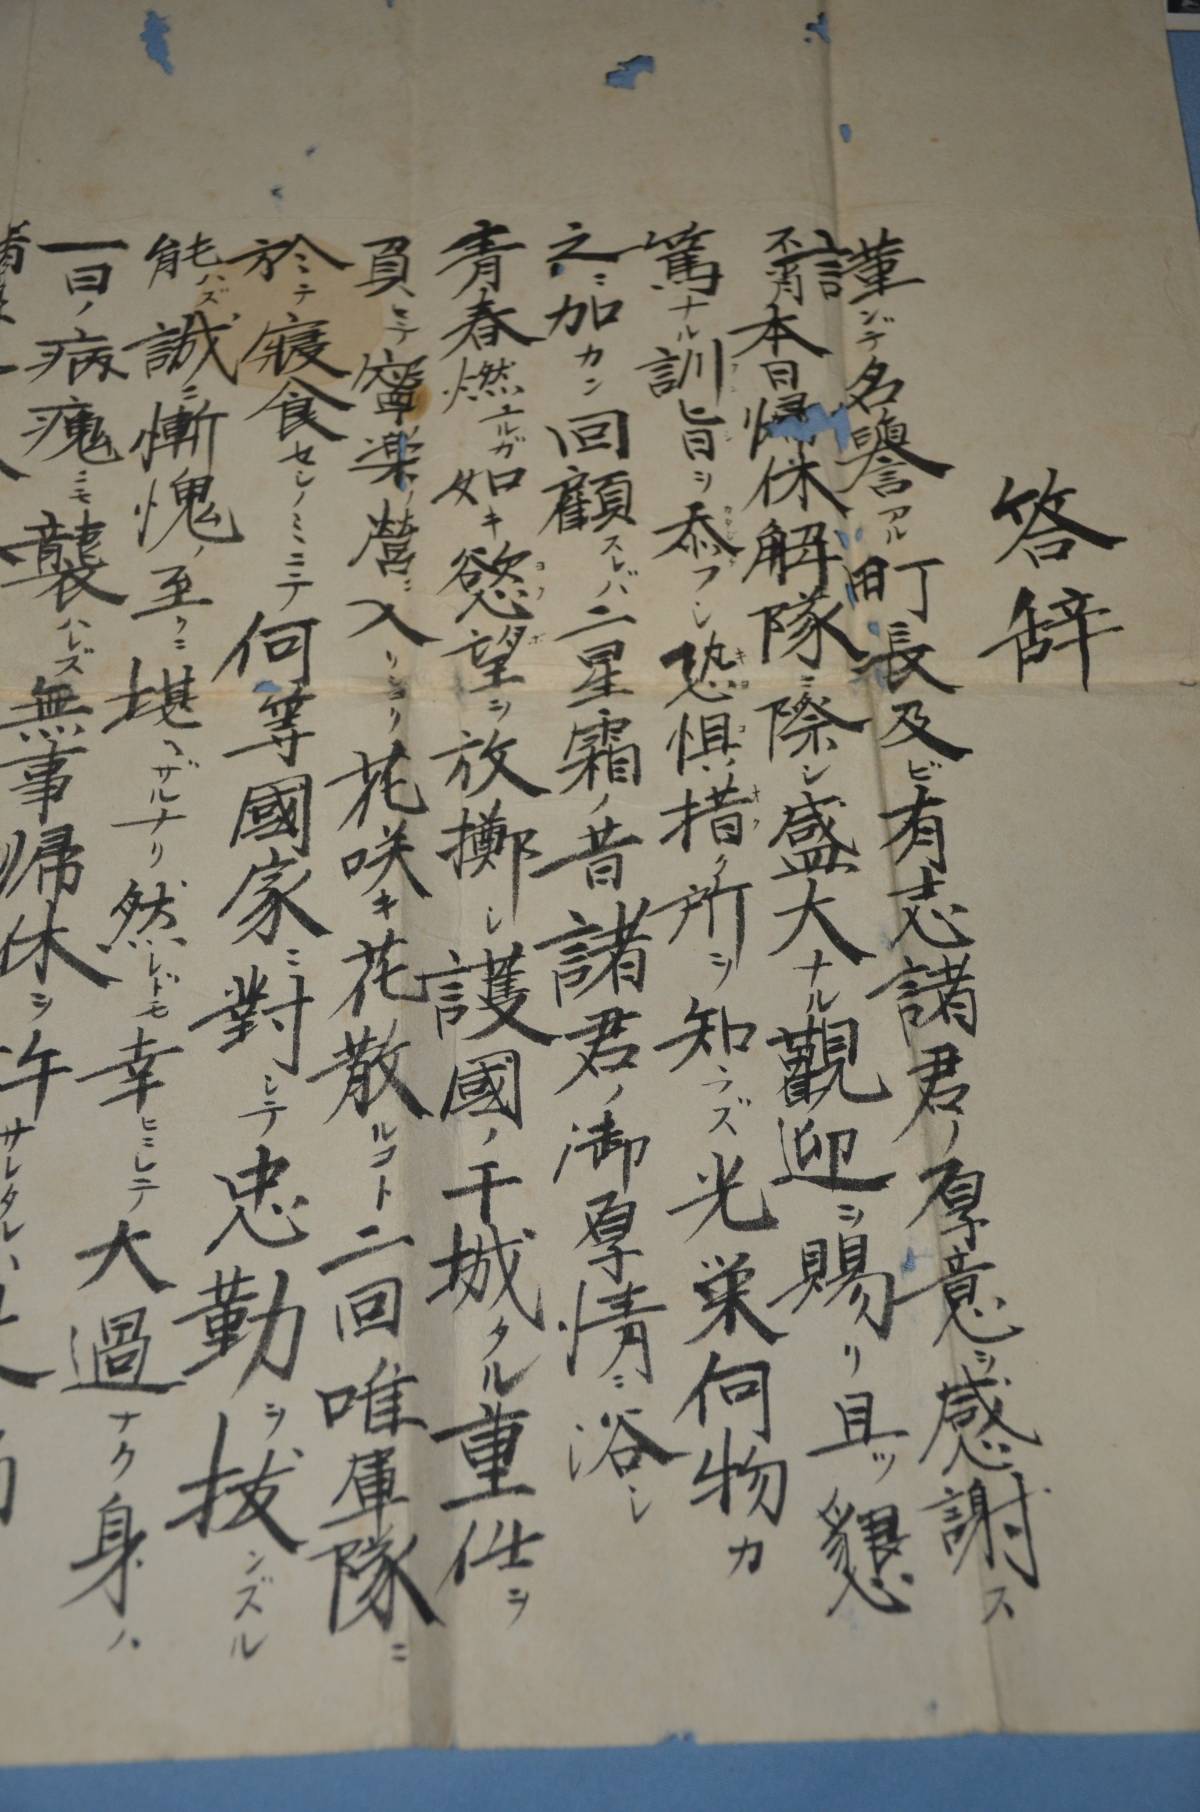 答辞
謹ンデ名譽アル町長及ビ有志諸君ノ厚意ヲ感謝ス
不肖本日帰休解隊ニ際シ盛大ナル觀迎ヲ賜リ且ツ懇
篤ナル訓旨ヲ忝フシ恐惧措ク所ヲ知ラズ光栄何物カ
之ニ加カン回顧スレバ二星霜ノ昔諸君ノ御厚情ニ浴シ
青春燃エルガ如キ慾望ヲ放擲シ護國ノ干城タル重任ヲ
負ヒテ寧楽ノ営ニ入リシヨリ花咲キ花散ルコト二回唯軍隊ニ
於テ寝食セシノミニテ何等國家ニ對シテ忠勤ヲ抜ンズル
能ハズ誠ニ慚愧ノ至リニ堪ヘザルナリ然レドモ幸ヒニシテ大過ナク身ハ
一日ノ病魔ニモ襲ハレズ無事帰休ヲ許サレタル